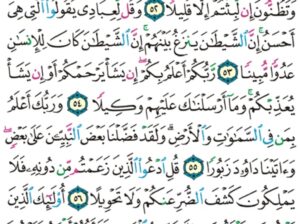 وَتَظُنُّونَ إِن لَّبِثْتُمْ إِلَّا قَلِيلًا ٥٢ وَقُل لِّعِبَادِى يَقُولُوا۟ ٱلَّتِى هِىَ
أَحْسَنُ إِنَّ ٱلشَّيْطَٰنَ يَنزَغُ بَيْنَهُمْ إِنَّ ٱلشَّيْطَٰنَ كَانَ لِلْإِنسَٰنِ
عَدُوًّا مُّبِينًا ٥٣ رَّبُّكُمْ أَعْلَمُ بِكُمْ إِن يَشَأْ يَرْحَمْكُمْ أَوْ إِن يَشَأْ
يُعَذِّبْكُمْ وَمَآ أَرْسَلْنَٰكَ عَلَيْهِمْ وَكِيلًا ٥٤ وَرَبُّكَ أَعْلَمُ
بِمَن فِى ٱلسَّمَٰوَٰتِ وَٱلْأَرْضِ وَلَقَدْ فَضَّلْنَا بَعْضَ ٱلنَّبِيِّـۧنَ عَلَىٰ بَعْضٍ
وَءَاتَيْنَا دَاوُۥدَ زَبُورًا ٥٥ قُلِ ٱدْعُوا۟ ٱلَّذِينَ زَعَمْتُم مِّن دُونِهِۦ فَلَا
يَمْلِكُونَ كَشْفَ ٱلضُّرِّ عَنكُمْ وَلَا تَحْوِيلًا ٥٦ أُو۟لَٰٓئِكَ ٱلَّذِينَ